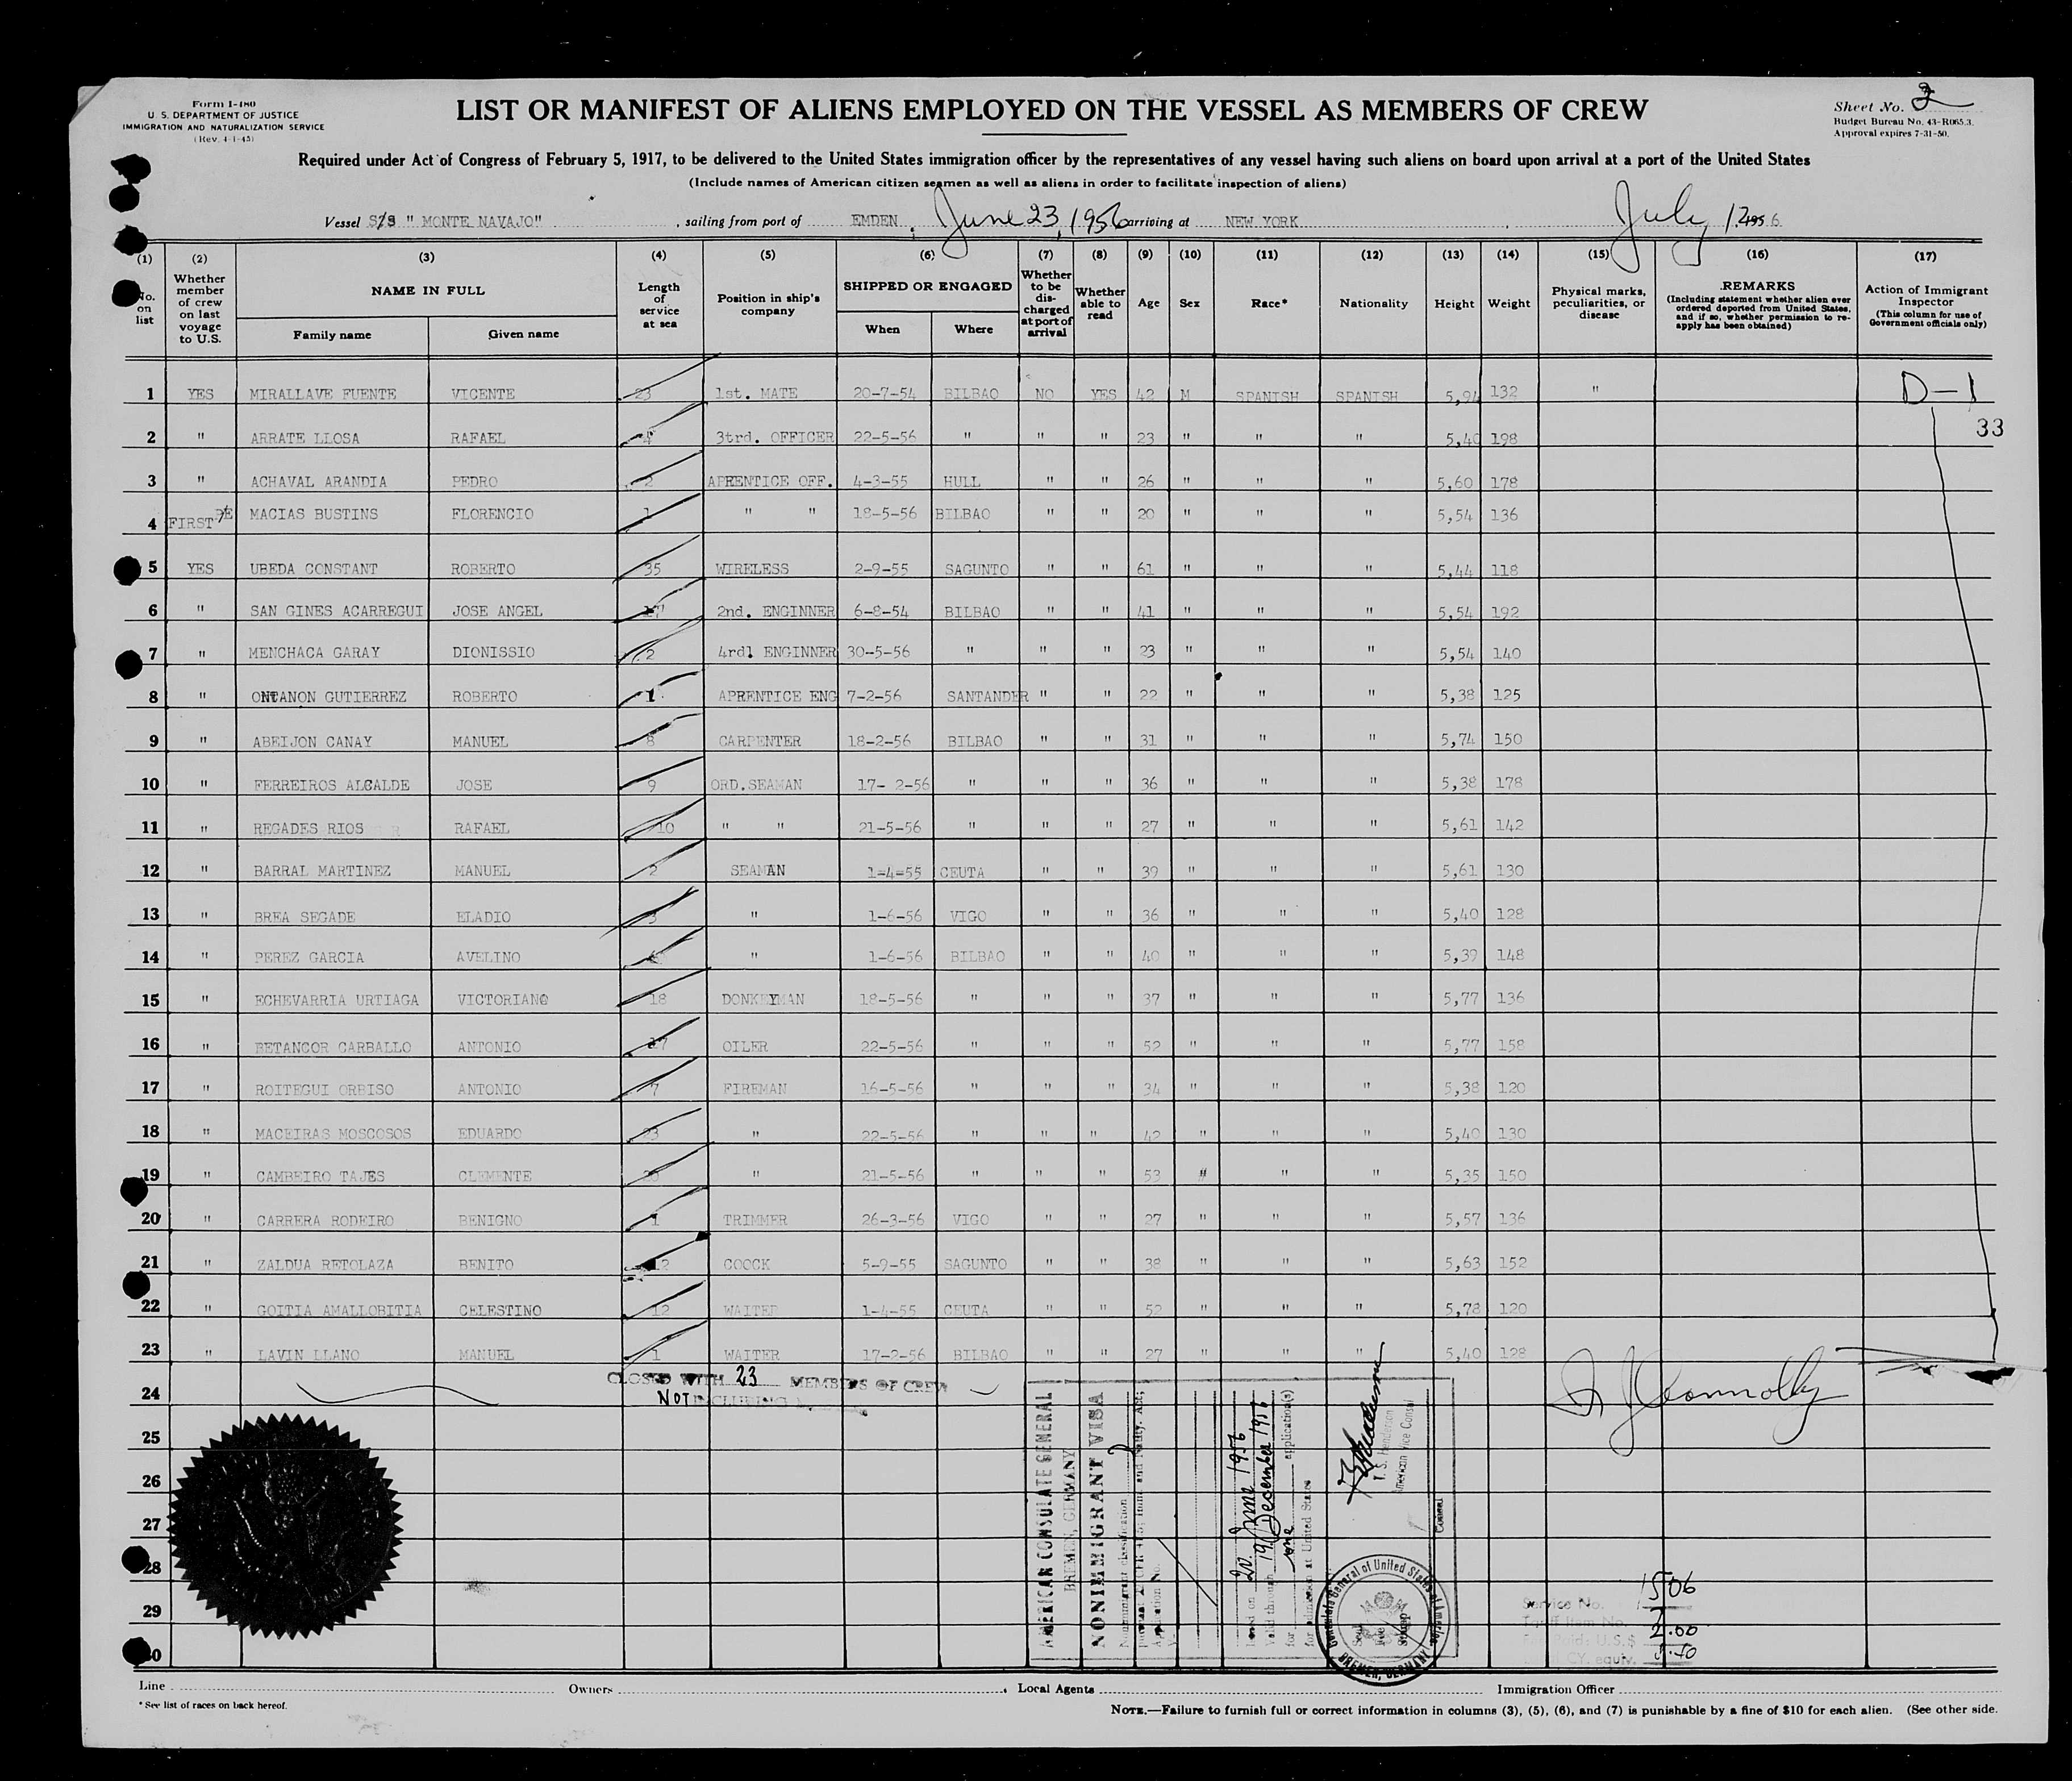 Form I-480
U. S. DEPARTMENT OF JUSTICE
IMMIGRATION AND NATURALIZATION SERVICE
(Rev. 4-1-45)
LIST OR MANIFEST OF ALIENS EMPLOYED ON THE VESSEL AS MEMBERS OF CREW
Sheet No. 2
Budget Bureau No. 43-R065.3.
Approval expires 7-31-50.
Required under Act of Congress of February 5, 1917, to be delivered to the United States immigration officer by the representatives of any vessel having such aliens on board upon arrival at a port of the United States
(Include names of American citizen seamen as well as aliens in order to facilitate inspection of aliens)
Vessel S/S " MONTE NAVAJO" , sailing from port of EMDEN, June 23, 1956 arriving at NEW YORK July 12 1956
(1) (2) (3) (4) (5) (6) (7) (8) (9) (10) (11) (12) (13) (14) (15) (16) (17)
No. on list
Whether member of crew on last voyage to U.S.
NAME IN FULL
Family name Given name
Length of service at sea
Position in ship's company
SHIPPED OR ENGAGED
When Where
Whether to be discharged at port of arrival
Whether able to read
Age Sex Race* Nationality Height Weight
Physical marks, peculiarities, or disease
REMARKS
(Including statement whether alien ever ordered deported from United States, and if so, whether permission to reapply has been obtained)
Action of Immigrant Inspector
(This column for use of Government officials only)
1 YES MIRALLAVE FUENTE VICENTE 23 1st. MATE 20-7-54 BILBAO NO YES 42 M SPANISH SPANISH 5,94 132 " D-1
33
2 " ARRATE LLOSA RAFAEL 4 3trd. OFFICER 22-5-56 " " " 23 " " " 5,40 198
3 " ACHAVAL ARANDIA PEDRO 2 APRENTICE OFF. 4-3-55 HULL " " 26 " " " 5,60 178
4 FIRST MACIAS BUSTINS FLORENCIO 1 " " 18-5-56 BILBAO " " 20 " " " 5,54 136
5 YES UBEDA CONSTANT ROBERTO 35 WIRELESS 2-9-55 SAGUNTO " " 61 " " " 5,44 118
6 " SAN GINES ACARREGUI JOSE ANGEL 17 2nd. ENGINNER 6-8-54 BILBAO " " 41 " " " 5,54 192
7 " MENCHACA GARAY DIONISSIO 2 4rdl ENGINNER 30-5-56 " " " 23 " " " 5,54 140
8 " ONTANON GUTIERREZ ROBERTO 1 APRENTICE ENG 7-2-56 SANTANDER " " 22 " " " 5,38 125
9 " ABEIJON CANAY MANUEL 8 CARPENTER 18-2-56 BILBAO " " 31 " " " 5,74 150
10 " FERREIROS ALCALDE JOSE 9 ORD.SEAMAN 17- 2-56 " " " 36 " " " 5,38 178
11 " REGADES RIOS RAFAEL 10 " " 21-5-56 " " " 27 " " " 5,61 142
12 " BARRAL MARTINEZ MANUEL 2 SEAMAN 1=4=55 CEUTA " " 39 " " " 5,61 130
13 " BREA SEGADE ELADIO 3 " 1-6-56 VIGO " " 36 " " " 5,40 128
14 " PEREZ GARCIA AVELINO " 1-6-56 BILBAO " " 40 " " " 5,39 148
15 " ECHEVARRIA URTIAGA VICTORIANO 18 DONKEYMAN 18-5-56 " " " 37 " " " 5,77 136
16 " BETANCOR CARBALLO ANTONIO 17 OILER 22-5-56 " " " 52 " " " 5,77 158
17 " ROITEGUI ORBISO ANTONIO 7 FIREMAN 16-5-56 " " " 34 " " " 5,38 120
18 " MACEIRAS MOSCOSOS EDUARDO 23 " 22-5-56 " " " 42 " " " 5,40 130
19 " CAMBEIRO TAJES CLEMENTE " 21-5-56 " " " 53 " " " 5,35 150
20 " CARRERA RODEIRO BENIGNO 1 TRIMMER 26-3-56 VIGO " " 27 " " " 5,57 136
21 " ZALDUA RETOLAZA BENITO 12 COOCK 5-9-55 SAGUNTO " " 38 " " " 5,63 152
22 " GOITIA AMALLOBITIA CELESTINO 12 WAITER 1-4-55 CEUTA " " 52 " " " 5,78 120
23 " LAVIN LLANO MANUEL 1 WAITER 17-2-56 BILBAO " " 27 " " " 5,40 128
CLOSED WITH 23 MEMBERS OF CREW
NOT INCLUDING
24
25
26
27
28
29
30
AMERICAN CONSULATE GENERAL
BREMEN, GERMANY
NONIMMIGRANT VISA
Nonimmigrant classification
Application No.
Issued on 20 June 1956
Valid through 19 December 1956
for one application(s)
for admission at United States
T. S. Henderson
American Vice Consul
Consul
Consulate General of United States of America
BREMEN, GERMANY
Seal Fee Stamp
J Connolly
Service No. 1506
Tariff Item No. 7
Fee Paid: U.S.$ 2.00
CY. equiv.
Line Owners Local Agents Immigration Officer
* See list of races on back hereof.
NOTE.—Failure to furnish full or correct information in columns (3), (5), (6), and (7) is punishable by a fine of $10 for each alien. (See other side.